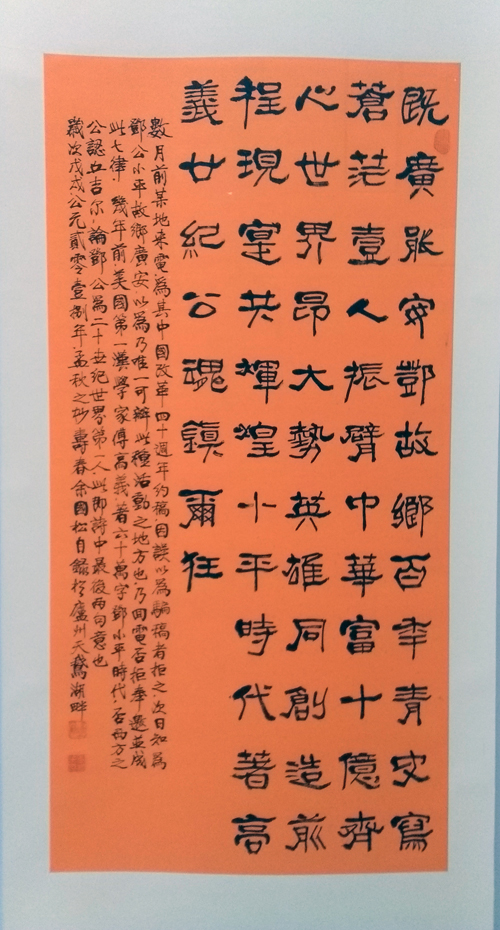 既廣能安鄧故鄉百年青史寫
蒼茫壹人振臂中華富十億齊
心世界昂大勢英雄同創造前
程現寔共輝煌小平時代著高
義廿紀公魂鎮爾狂
數月前某地来電為其中國改革四十週年約稿因誤以為騙稿者拒之次日知為
鄧公小平故鄉廣安以為乃唯一可辦此種活動之地方也乃回電否拒奉邀並成
此七律幾年前美國第一漢學家傅高義著六十萬字鄧小平時代否西方之
公認丘吉尔論鄧公為二十世紀世界第一人此即詩中最後兩句意也
歲次戊戌公元貳零壹捌年孟秋之抄壽春余國松自錄於廬州天鵝湖畔